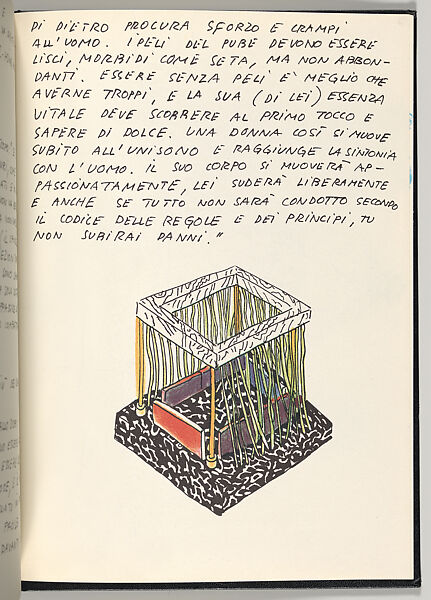 DI DIETRO PROCURA SFORZO E CRAMPI
ALL'UOMO. I PELI DEL PUBE DEVONO ESSERE
LISCI, MORBIDI COME SETA, MA NON ABBON-
DANTI. ESSERE SENZA PELI E' MEGLIO CHE
AVERNE TROPPI, E LA SUA (DI LEI) ESSENZA
VITALE DEVE SCORRERE AL PRIMO TOCCO E
SAPERE DI DOLCE. UNA DONNA COSÌ SI MUOVE
SUBITO ALL'UNISONO E RAGGIUNGE LA SINTONIA
CON L'UOMO. IL SUO CORPO SI MUOVERÀ AP-
PASSIONATAMENTE, LEI SUDERÀ LIBERAMENTE
E ANCHE SE TUTTO NON SARÀ CONDOTTO SECONDO
IL CODICE DELLE REGOLE E DEI PRINCIPI, TU
NON SUBIRAI DANNI."